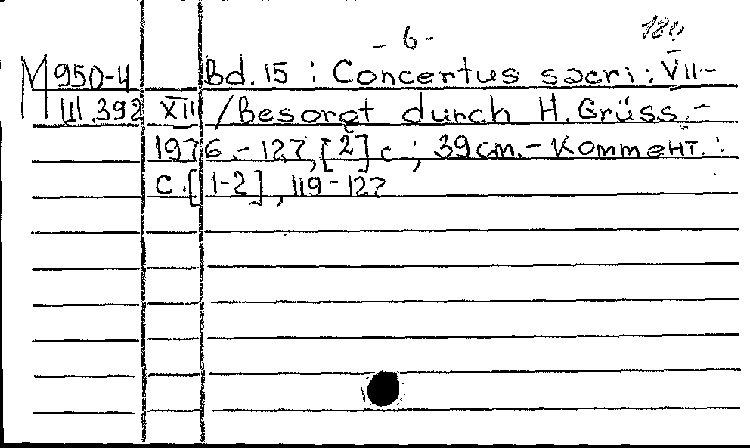 - 6 -
180
М 950-4 Bd. 15 : Concertus sacri : VII-
III 392 XII / Besorgt durch H. Grüss. -
1976. - 127, [2] с ; 39 см. - Коммент. :
с. [1-2], 119-127